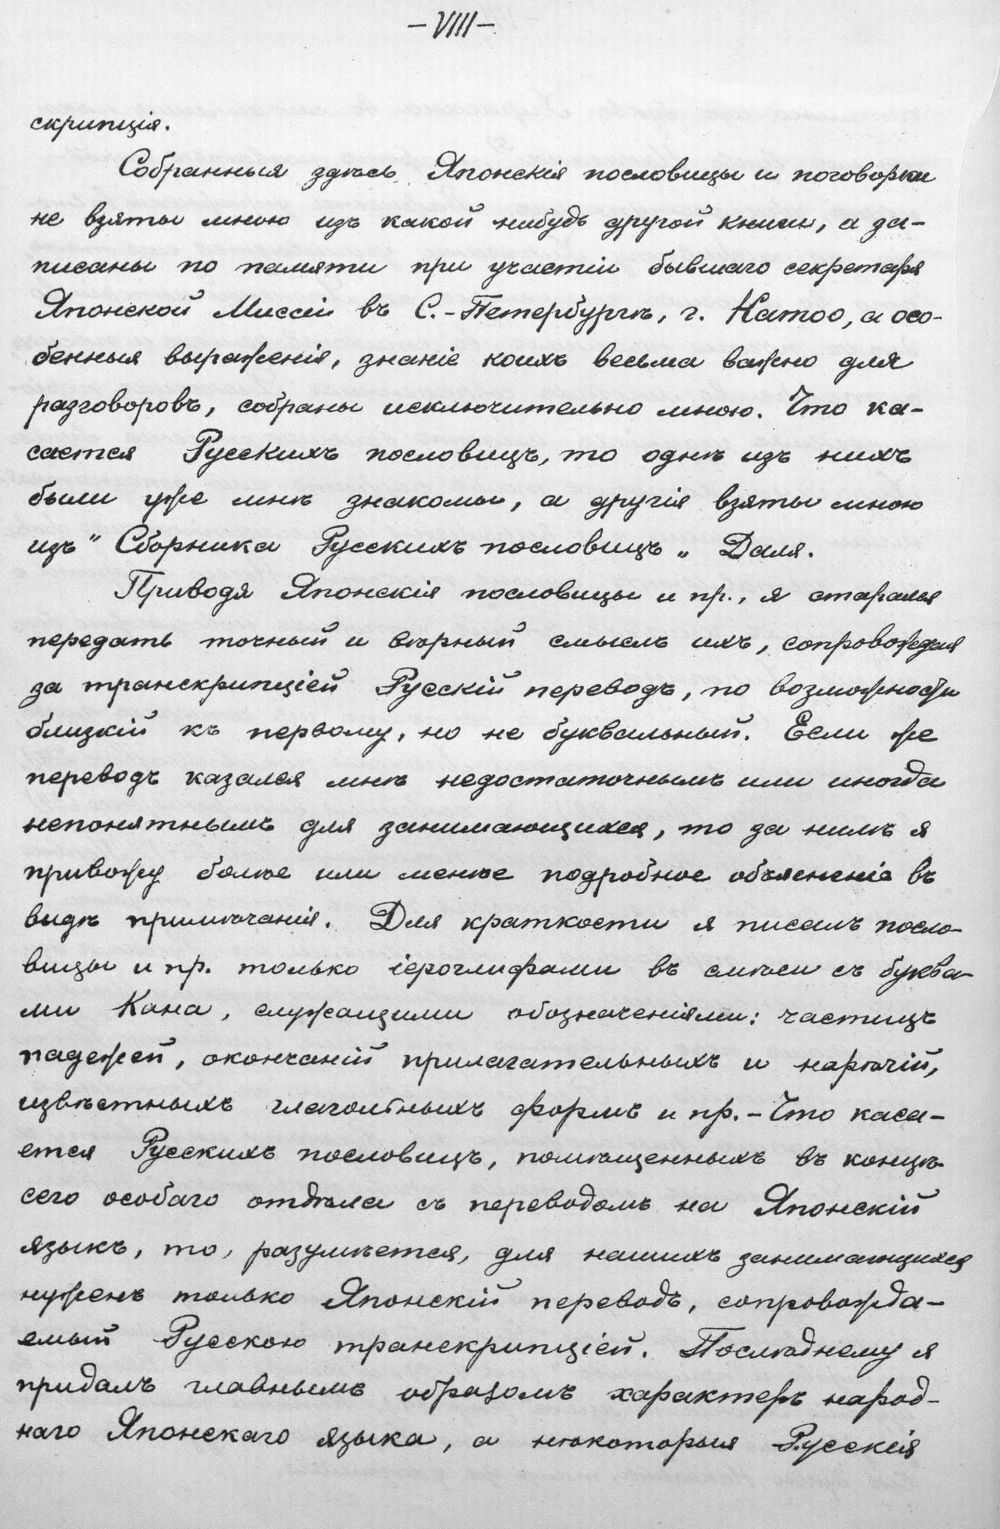 —VIII—
скрипція.
Собранныя здѣсь Японскія пословицы и поговорки
не взяты мною изъ какой нибудь другой книги, а за-
писаны по памяти при участіи бывшаго секретаря
Японской Миссіи въ С.-Петербургѣ, г. Натоо, а осо-
бенныя выраженія, знаніе коихъ весьма важно для
разговоровъ, собраны исключительно мною. Что ка-
сается Русскихъ пословицъ, то однѣ изъ нихъ
были уже мнѣ знакомы, а другія взяты мною
изъ " Сборника Русскихъ пословицъ „ Даля.
Приводя Японскія пословицы и пр., я старался
передать точный и вѣрный смыслъ ихъ, сопровождая
за транскрипціей Русскій переводъ, по возможности
близкій къ первому, но не буквальный. Если же
переводъ казался мнѣ недостаточнымъ или иногда
непонятнымъ для занимающихся, то за нимъ я
привожу болѣе или менѣе подробное объясненіе въ
видѣ примѣчанія. Для краткости я писалъ посло-
вицы и пр. только іероглифами въ смѣси съ буква-
ми Кана, служащими обозначеніями: частицъ
падежей, окончаній прилагательныхъ и нарѣчій,
извѣстныхъ глагольныхъ формъ и пр.—Что каса-
ется Русскихъ пословицъ, помѣщенныхъ въ концѣ
сего особаго отдѣла съ переводомъ на Японскій
языкъ, то, разумѣется, для нашихъ занимающихся
нуженъ только Японскій переводъ, сопровожда-
емый Русскою транскрипціей. Послѣднему я
придалъ главнымъ образомъ характеръ народ-
наго Японскаго языка, а нѣкоторыя Русскія